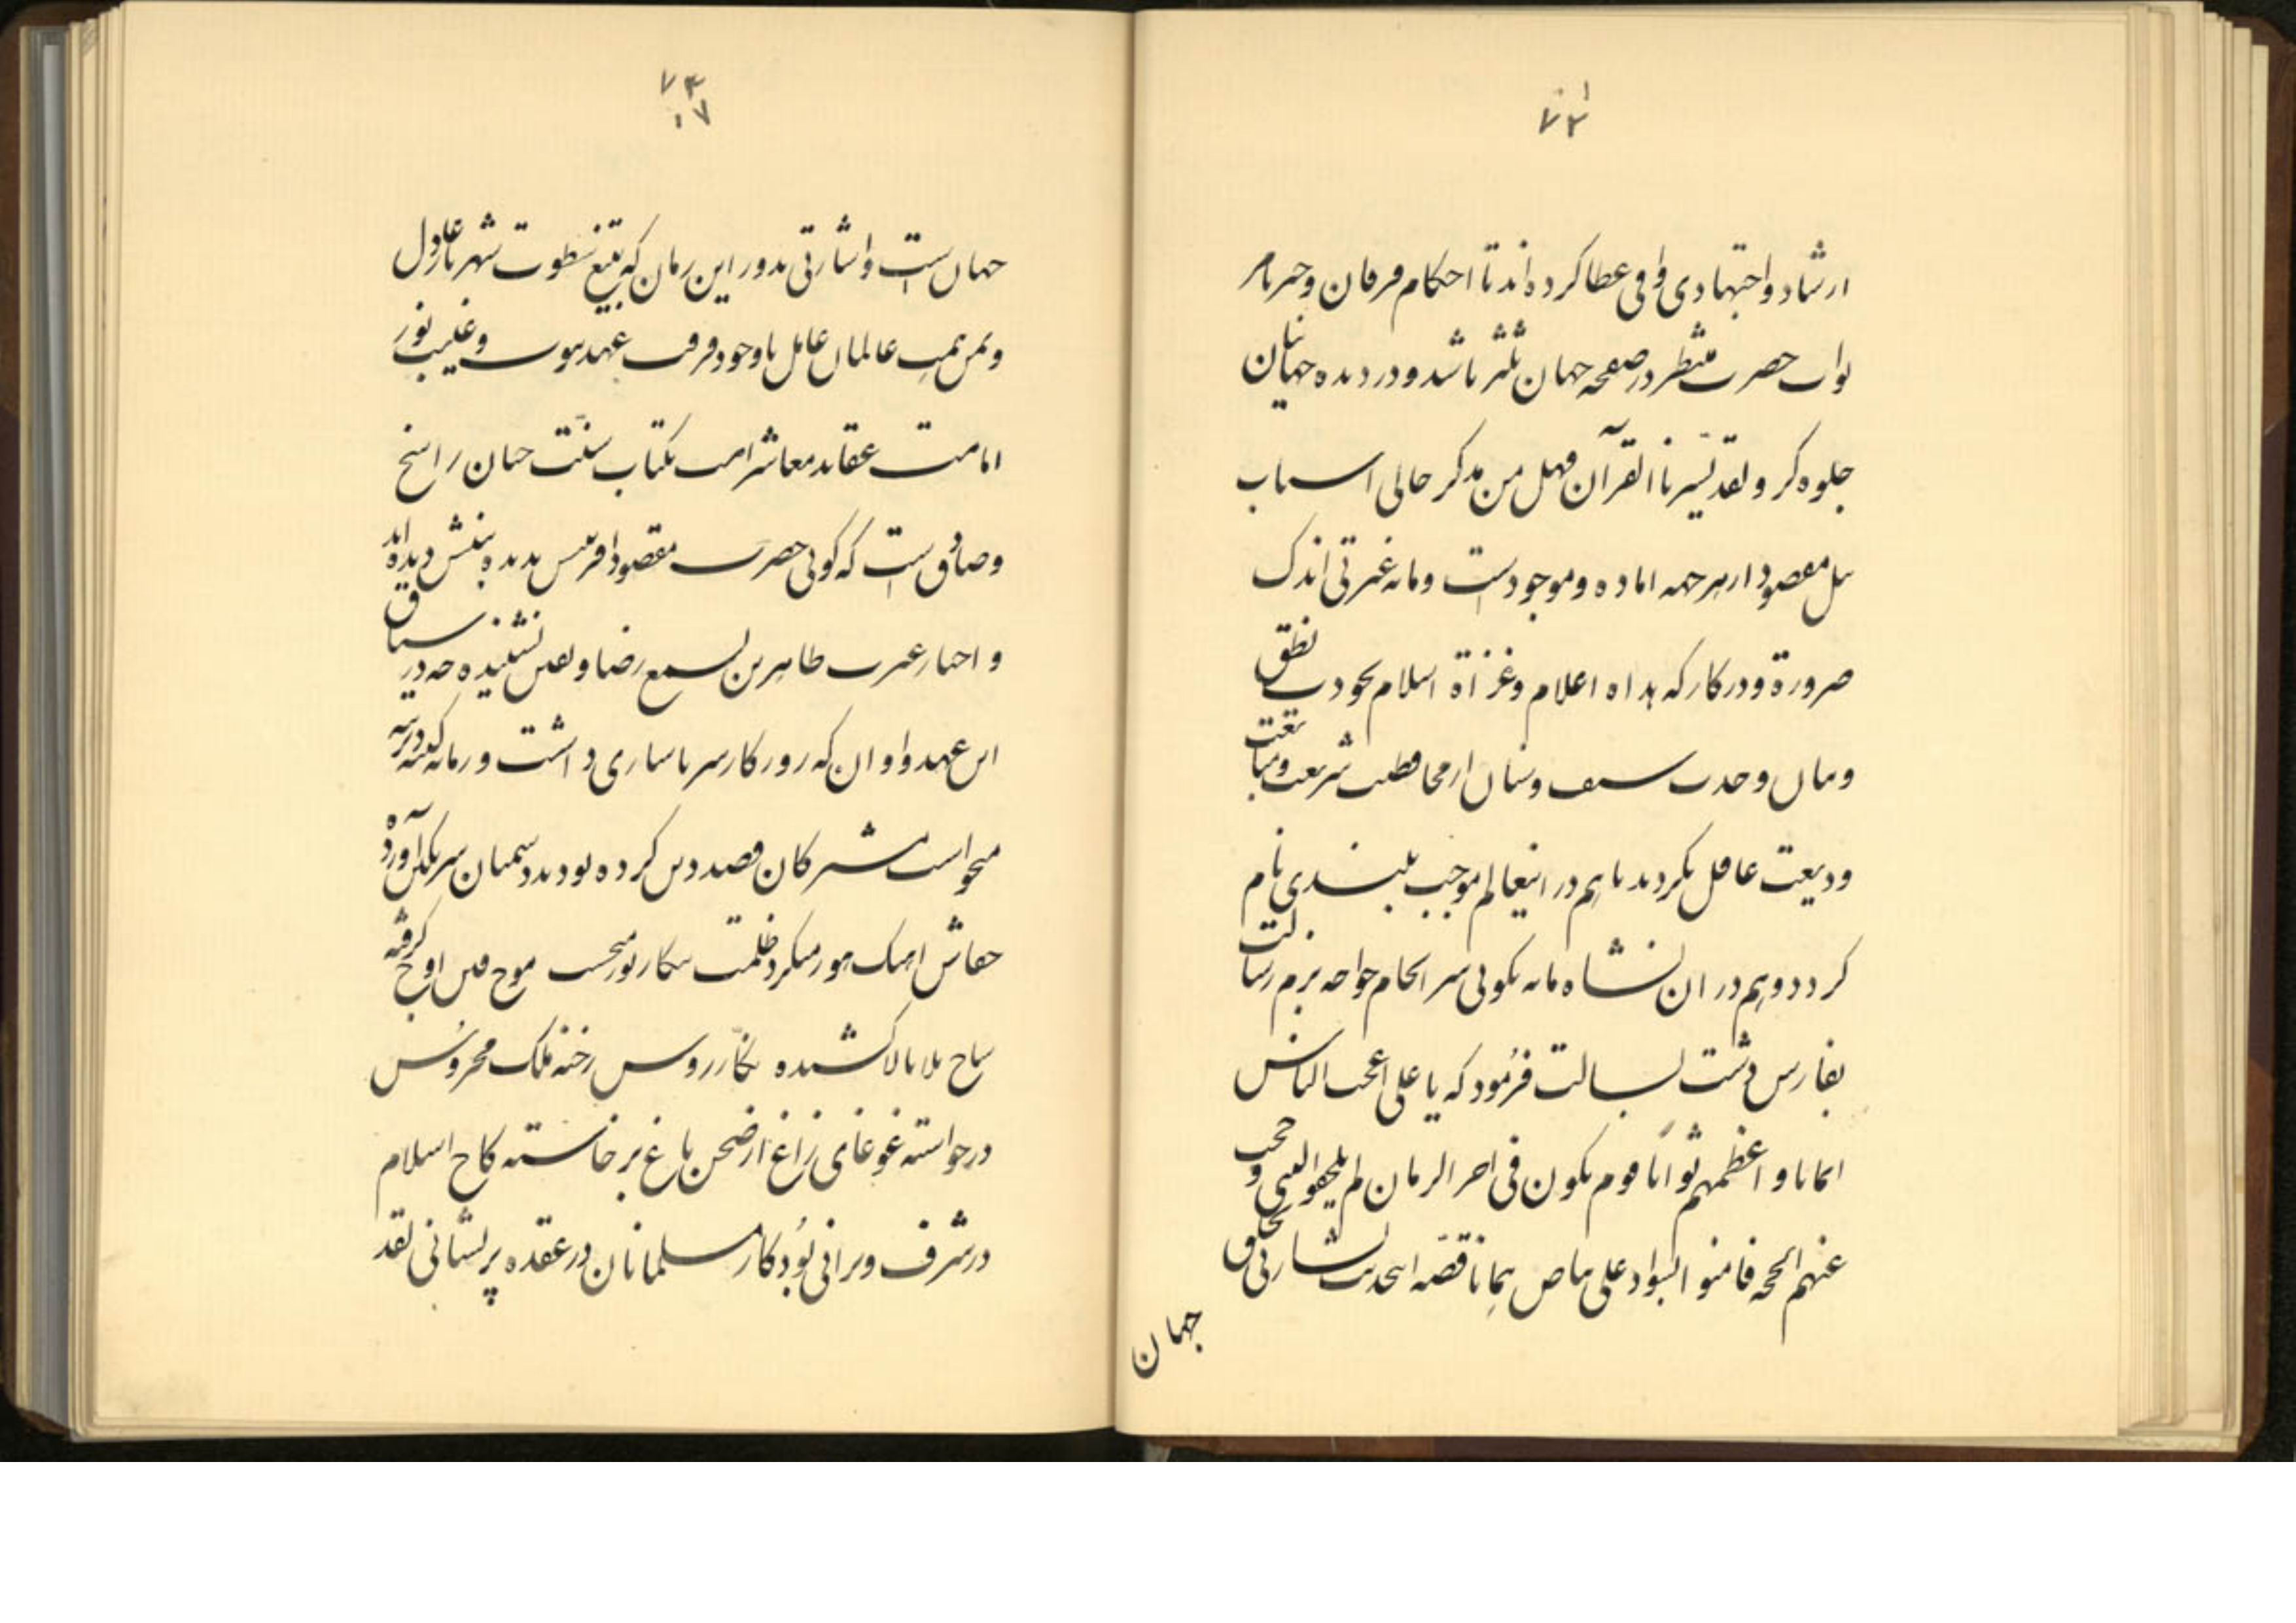 ۷۳
ارشاد و اجتهادی وافی عطا کرده اند تا احکام فرقان و
نواب حضرت منتظر در صفحه جهان منتشر باشد و در دیده جهانیان
جلوه کر و لقد یسرنا القرآن فهل من مدکر حالی اسباب
نیل مقصود از هر جهه اماده و موجود است و مانه غیرتی اندک
ضرورة و در کار که هداه اعلام و غزاة اسلام بحودت نطق
و بیان و حدت سیف و سنان از محافظت شریعت و متابعت
ودیعت غافل نکردند تا هم در اینعالم موجب بلندی نام
کردد و هم در ان نشاه مایه نکوئی سر انجام خواجه بزم رسالت
بفارس دشت بسالت فرمود که یا علی اعجب الناس
ایمانا و اعظمهم ثوابا قوم یکون فی اخر الزمان لم یلحقوا النبی و حجب
عنهم الحجه فامنوا بسواد علی بیاض همانا قصه ایحدیث بشارتی بخلق
جهان
۷۴
جهان است و اشارتی بدور این زمان که بتیغ سطوت شهریار عادل
و یمن همت عالمان عامل با وجود قرب عهد نبوت و غیبت نور
امامت عقاید معاشر امت بکتاب سنت چنان راسخ
و صادق است که کوئی حضرت مقصود افرینش بدیده بینش دیده اند
و اخبار عترت طاهرین بسمع رضا و یقین شنیده چه در سیاق
این عهد و اوان که روزکار سر ناسازی داشت و زمانه کینه دیرینه
میخواست مشرکان قصد دین کرده بودند دشمنان سر بکین آورده
خفاش اهنک هور میکرد ظلمت پیکار نور میجست موج فتن اوج کرفته
سیاح بلا بالا کشیده نجار روس رخنه ملک محروس
درخواسته غوغای زاغ از صحن باغ برخاسته کاخ اسلام
در شرف ویرانی بود کار مسلمانان در عقده پریشانی لقد